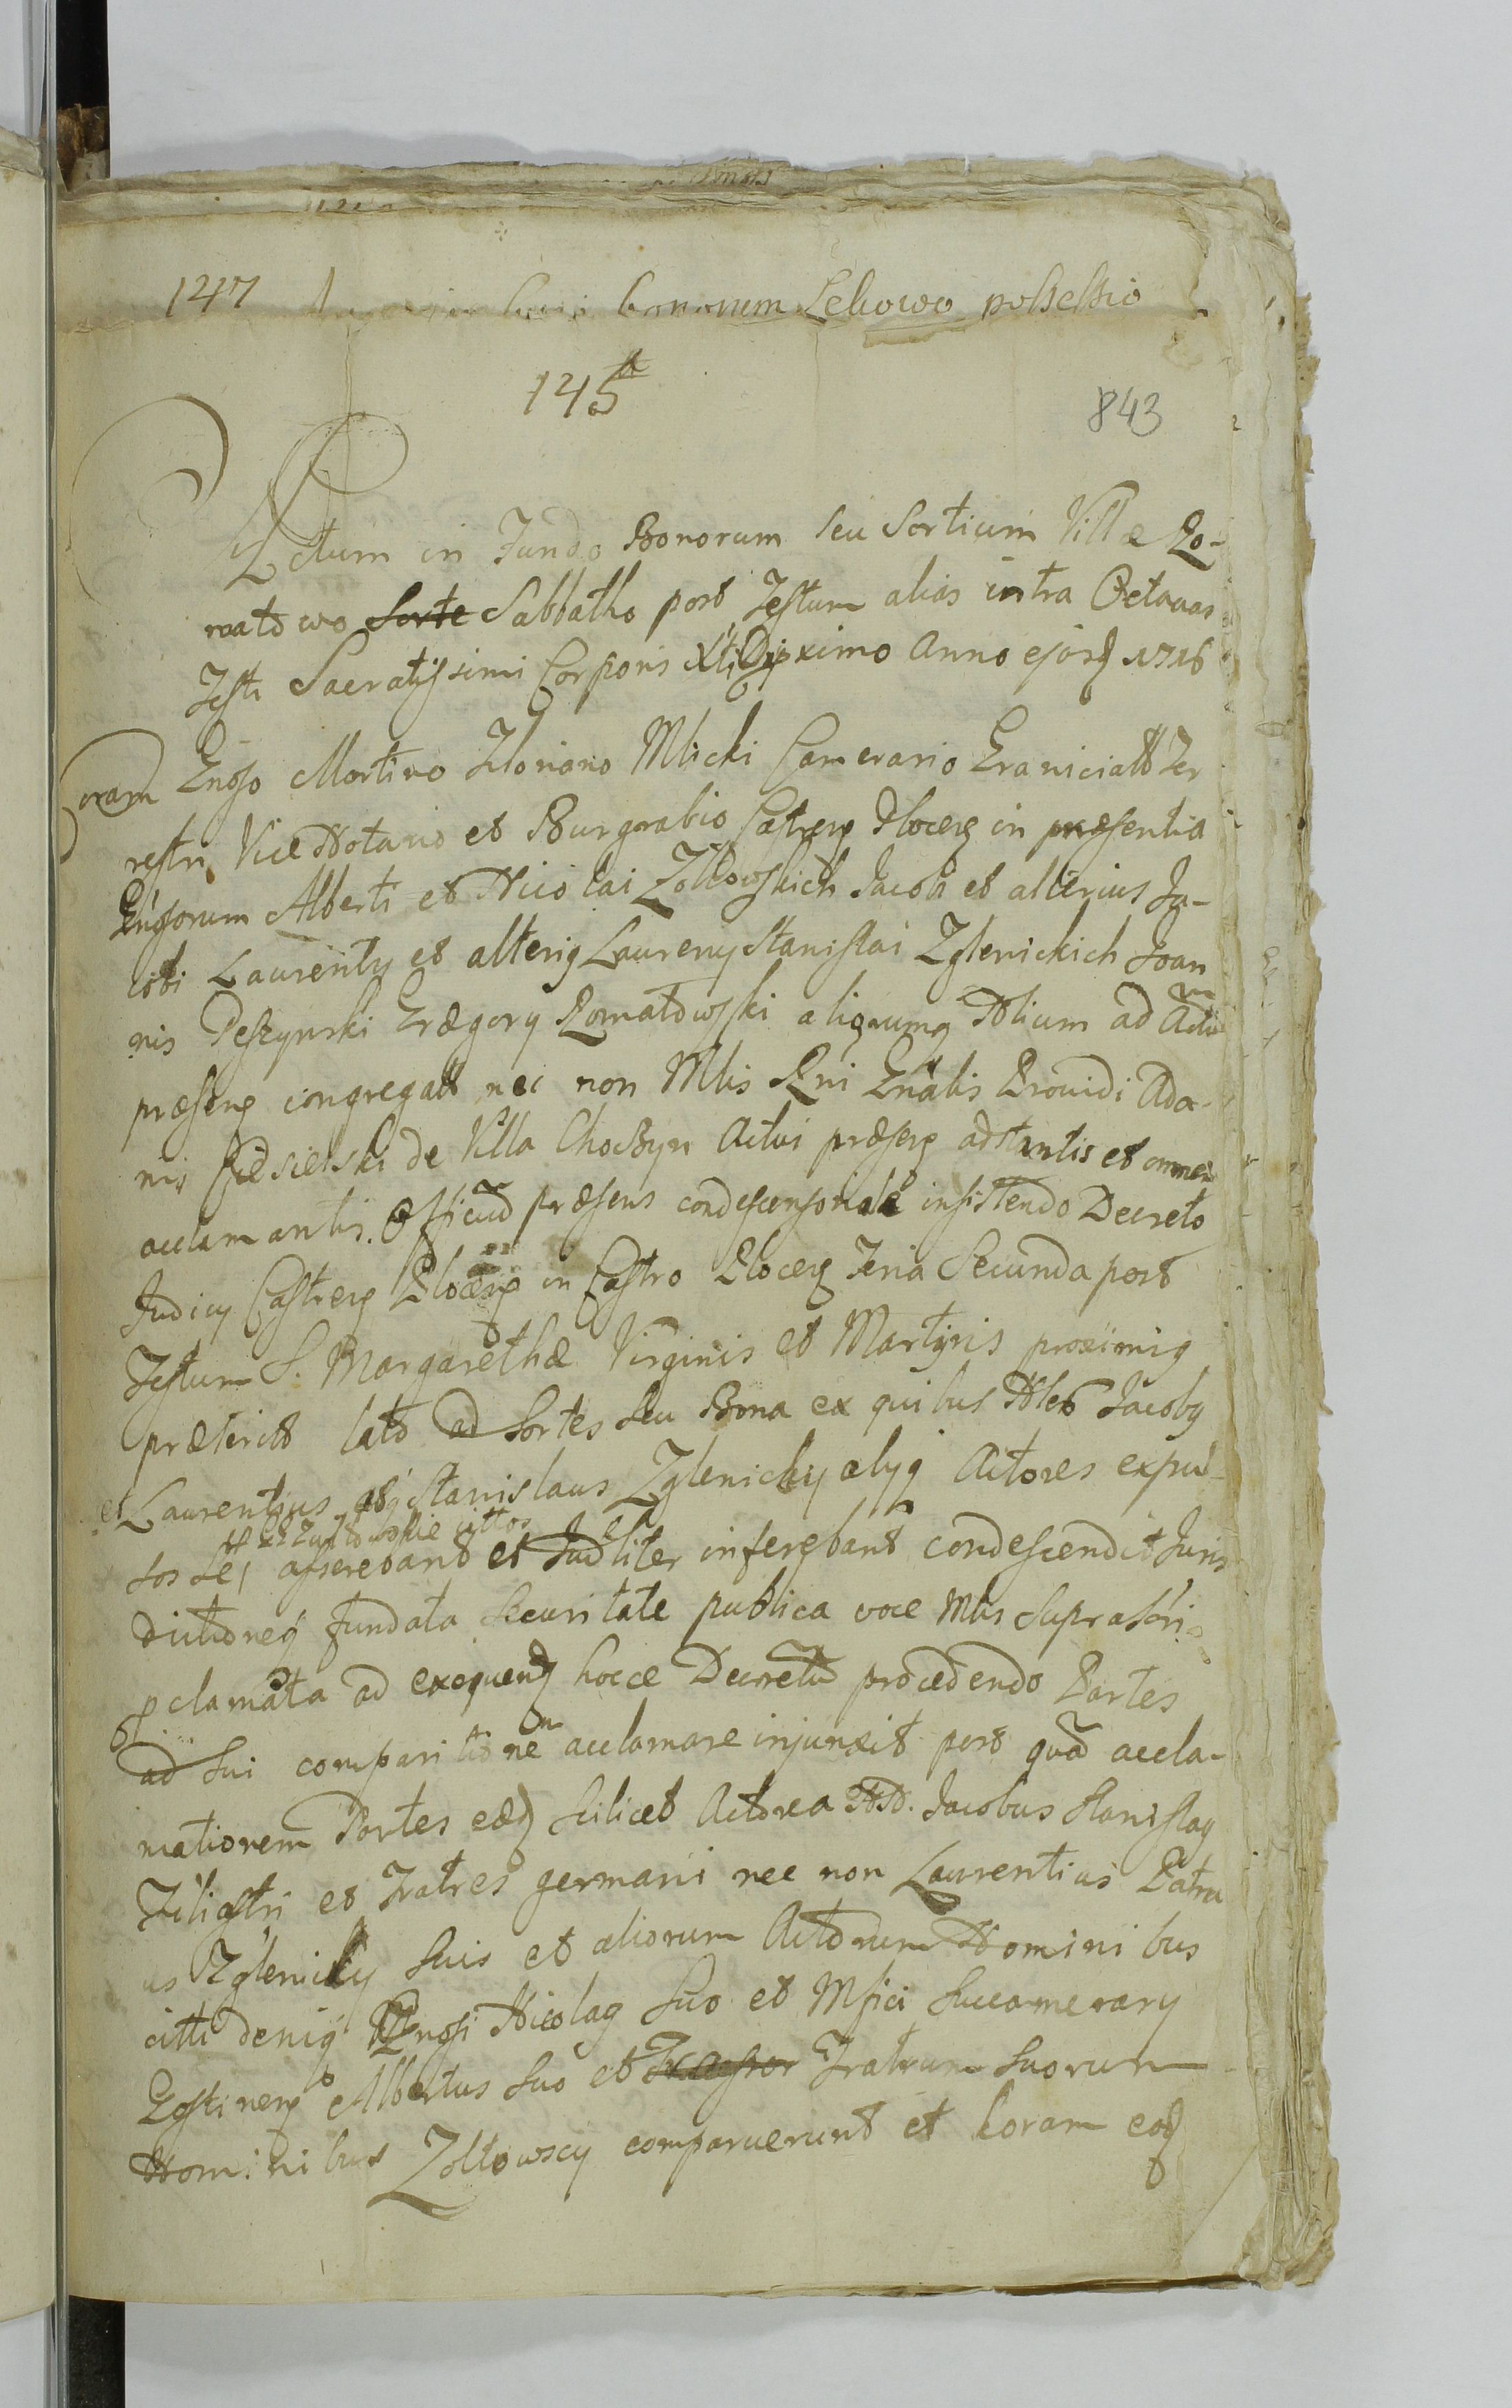 147 bonorum Lelowo possessio
145
843
Actum in Fundo Bonorum seu Sortium Villæ Ro-
matowo Sorte Sabbatho post Festum alias intra Octavas
Festi Sacratissimi Corporis Xti Dni proximo Anno ejusd 1716
Coram Gnoso Martino Floriano Mlicki Camerario Graniciali Ter
restri Vice Notario et Burgrabio Castren Plocen in præsentia
Gnosorum Alberti et Nicolai Zołtowskich Jacobi et alterius Ja-
cobi Laurenty et alterig Laureny Stanislai Zglenickich Joan
nis Peszynski Grægory Romatowski aliorumq Nlium ad Actu
præsens congregatt nec non Mlis Rni Gnalis Providi Ada-
mi de Villa Choczyn Actui præsen adstantis et
acclamantis. Officiu præsens condescensoriale insistendo Decreto
Judicy Castren Plocen in Castro Plocen Feria Secunda post
Festum S. Margarethæ Virginis et Martyris proximis
præterit lato ad Sortes seu Bona ex quibus Nles Jacobg
et Laurentius Stanislaus Zglenicky alyq Actores expul-
sos se asserebant et Judliter inferebant condescendit Juris
dictioneq fundata Securitate publica voce Mlis Suprascri
pclamata ad exequend hocce Decretu procedendo Partes
ad sui comparitionem acclamare injunxit post qua accla-
mationem Partes eæd scilicet Actorea NN. Jacobus Stanislag
Filiastri et Fratres germani nec non Laurentius Patru
us Zglenicky suis et aliorum Actorum Nominibus
citti deniq Gnosi Nicolag Suo et Mfici Succamerary
Gostinen Albertus suo et Fratrum suorum
Nominibus Zołtowscy comparuerunt et Coram eod